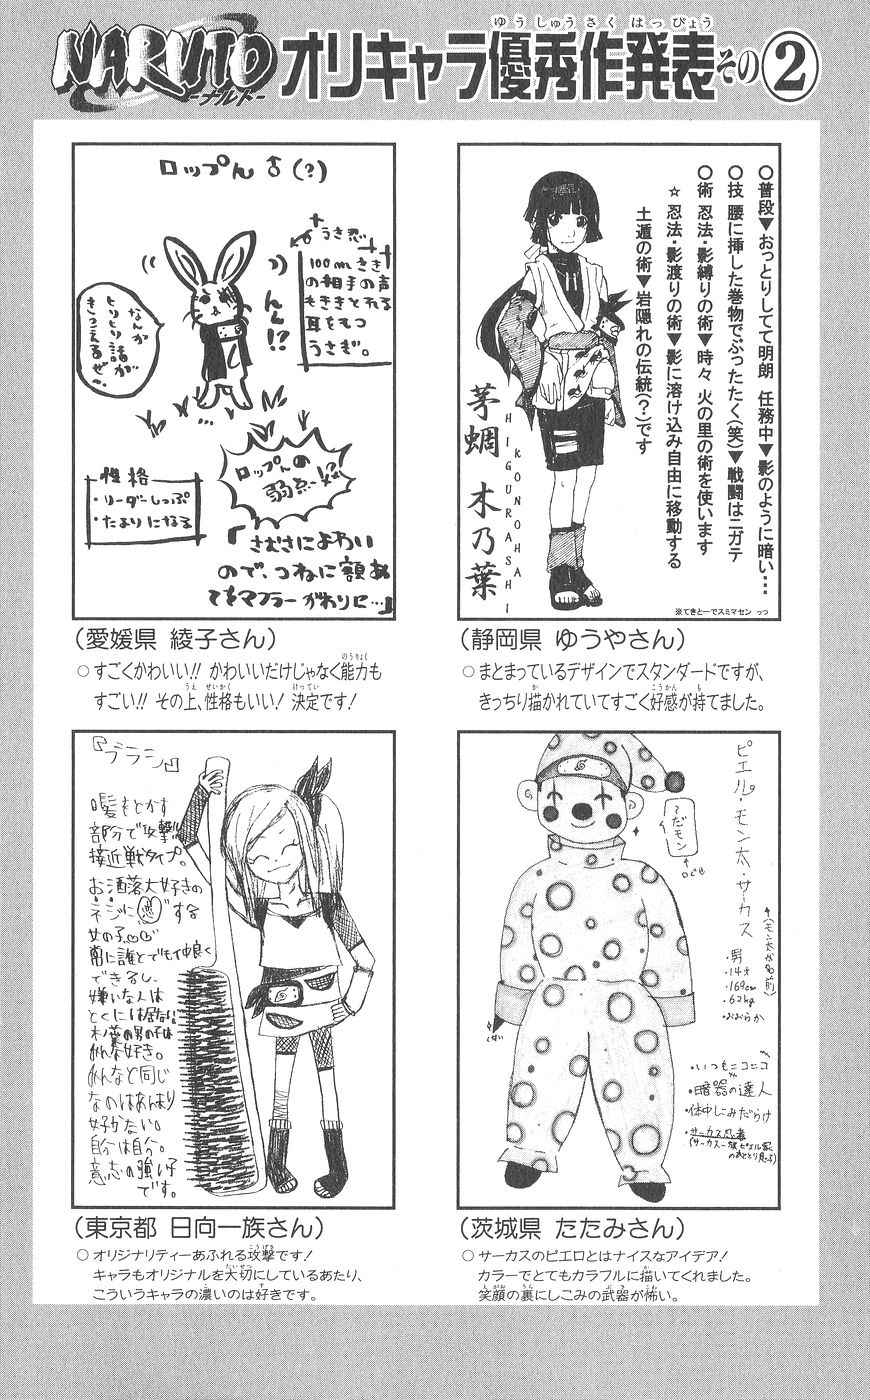 NARUTO
ーナルトー
オリキャラ優秀作発表その②
ゆうしゅうさくはっぴょう
ロップん♂(?)
うさ忍
100mさき
の相手の声
もききとれる
耳をもつ
うさぎ。
なんか
とりとり話が
きこえるぜ…
ん…!?
ロップんの
弱点…!?
性格
・リーダーしっぷ
・たよりになる
「さむさによわい
ので、つねに額あ
てをマフラーがわりに…」
(愛媛県 綾子さん)
○すごくかわいい!! かわいいだけじゃなく能力も
すごい!! その上、性格もいい! 決定です!
○普段▼おっとりしてて明朗 任務中▼影のように暗い…
○技 腰に挿した巻物でぶったたく(笑)▼戦闘はニガテ
○術 忍法・影縛りの術▼時々 火の里の術を使います
☆ 忍法・影渡りの術▼影に溶け込み自由に移動する
土遁の術▼岩隠れの伝統(?)です
茅蜩 木乃葉
HIGURASHI
KONOHA
※てきとーでスミマセン っっ
(静岡県 ゆうやさん)
○まとまっているデザインでスタンダードですが、
きっちり描かれていてすごく好感が持てました。
『ブラシ』
髪をとかす
部分で攻撃!!
接近戦タイプ。
お洒落大好きの
ネジに恋する
女の子♡♡
常に誰とでも仲良く
できるし、
嫌いな人は
とくには居ない。
木ノ葉の男の子は
みんな好き。
みんなと同じ
なのはあんまり
好かない。
自分は自分。
意志の強い子
です。
(東京都 日向一族さん)
○オリジナリティーあふれる攻撃です!
キャラもオリジナルを大切にしているあたり、
こういうキャラの濃いのは好きです。
ピエル・モン太・サーカス
〜だモン
口ぐせ
(モン太が名前)
・男
・14才
・169cm
・62kg
・おおらか
・いつもニコニコ
・暗器の達人
・体中しこみだらけ
・サーカス忍者
(サーカス一族ピエル家
(茨城県 たたみさん)
○サーカスのピエロとはナイスなアイデア!
カラーでとてもカラフルに描いてくれました。
笑顔の裏にしこみの武器が怖い。